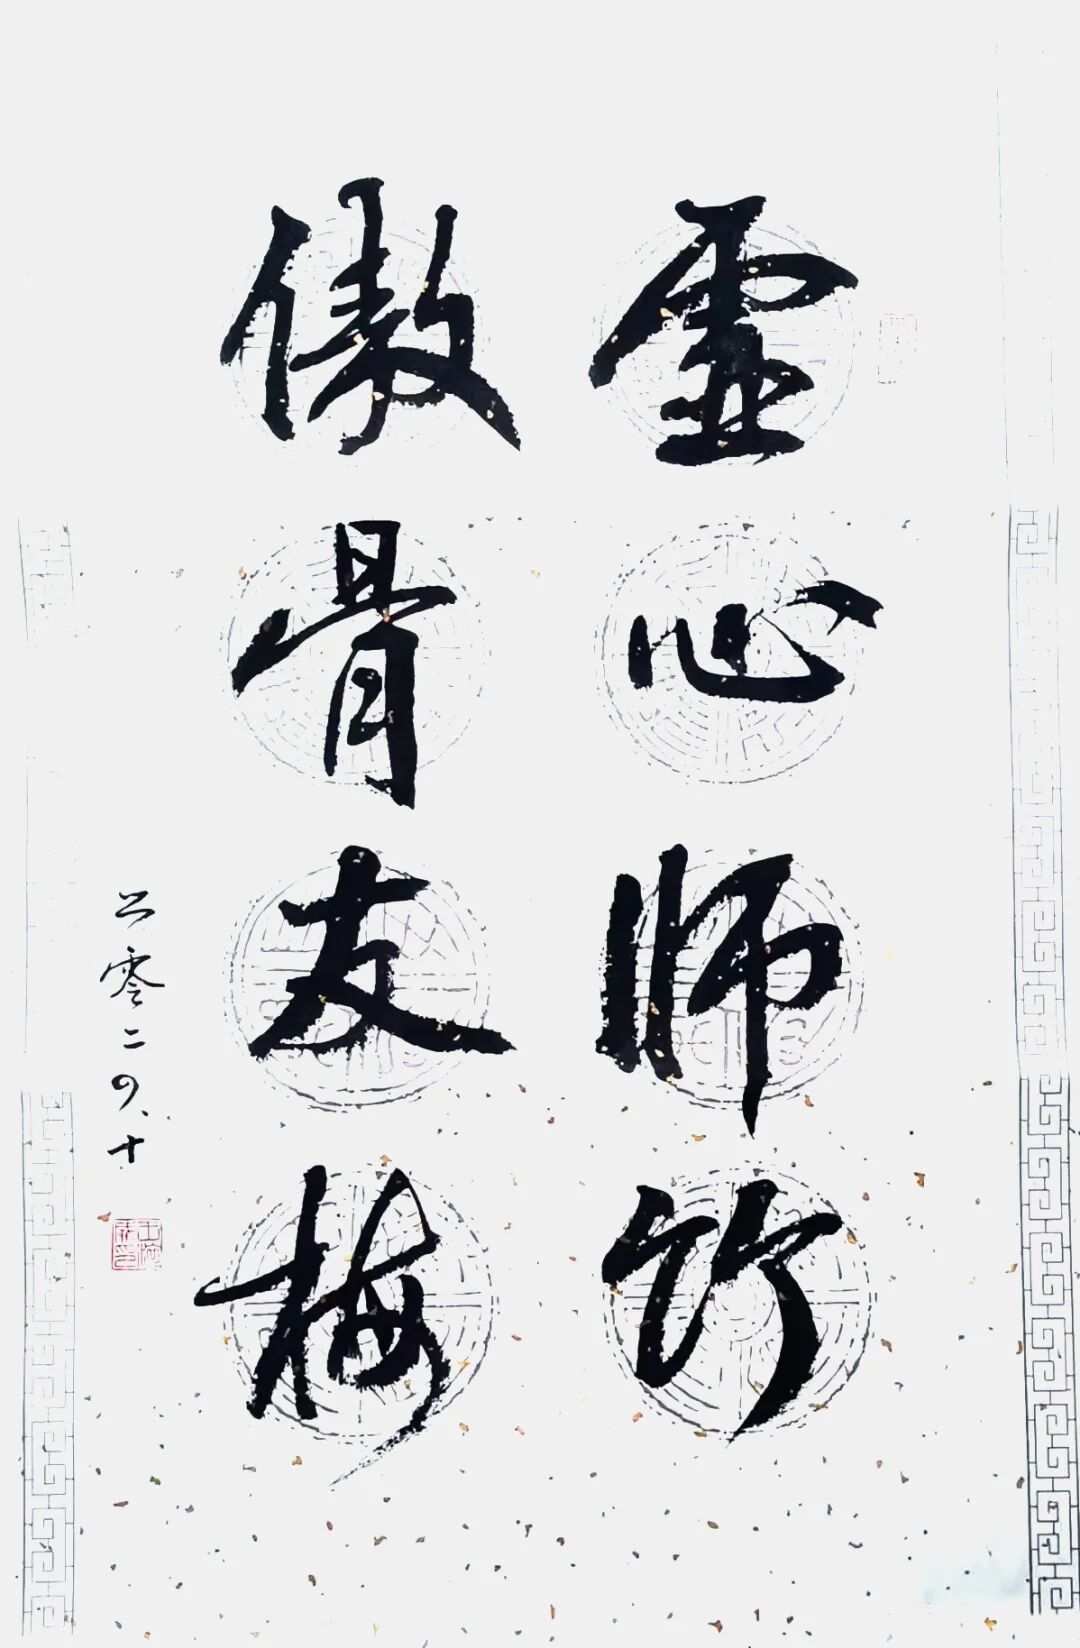 虚心师竹
傲骨友梅
二零二四、十